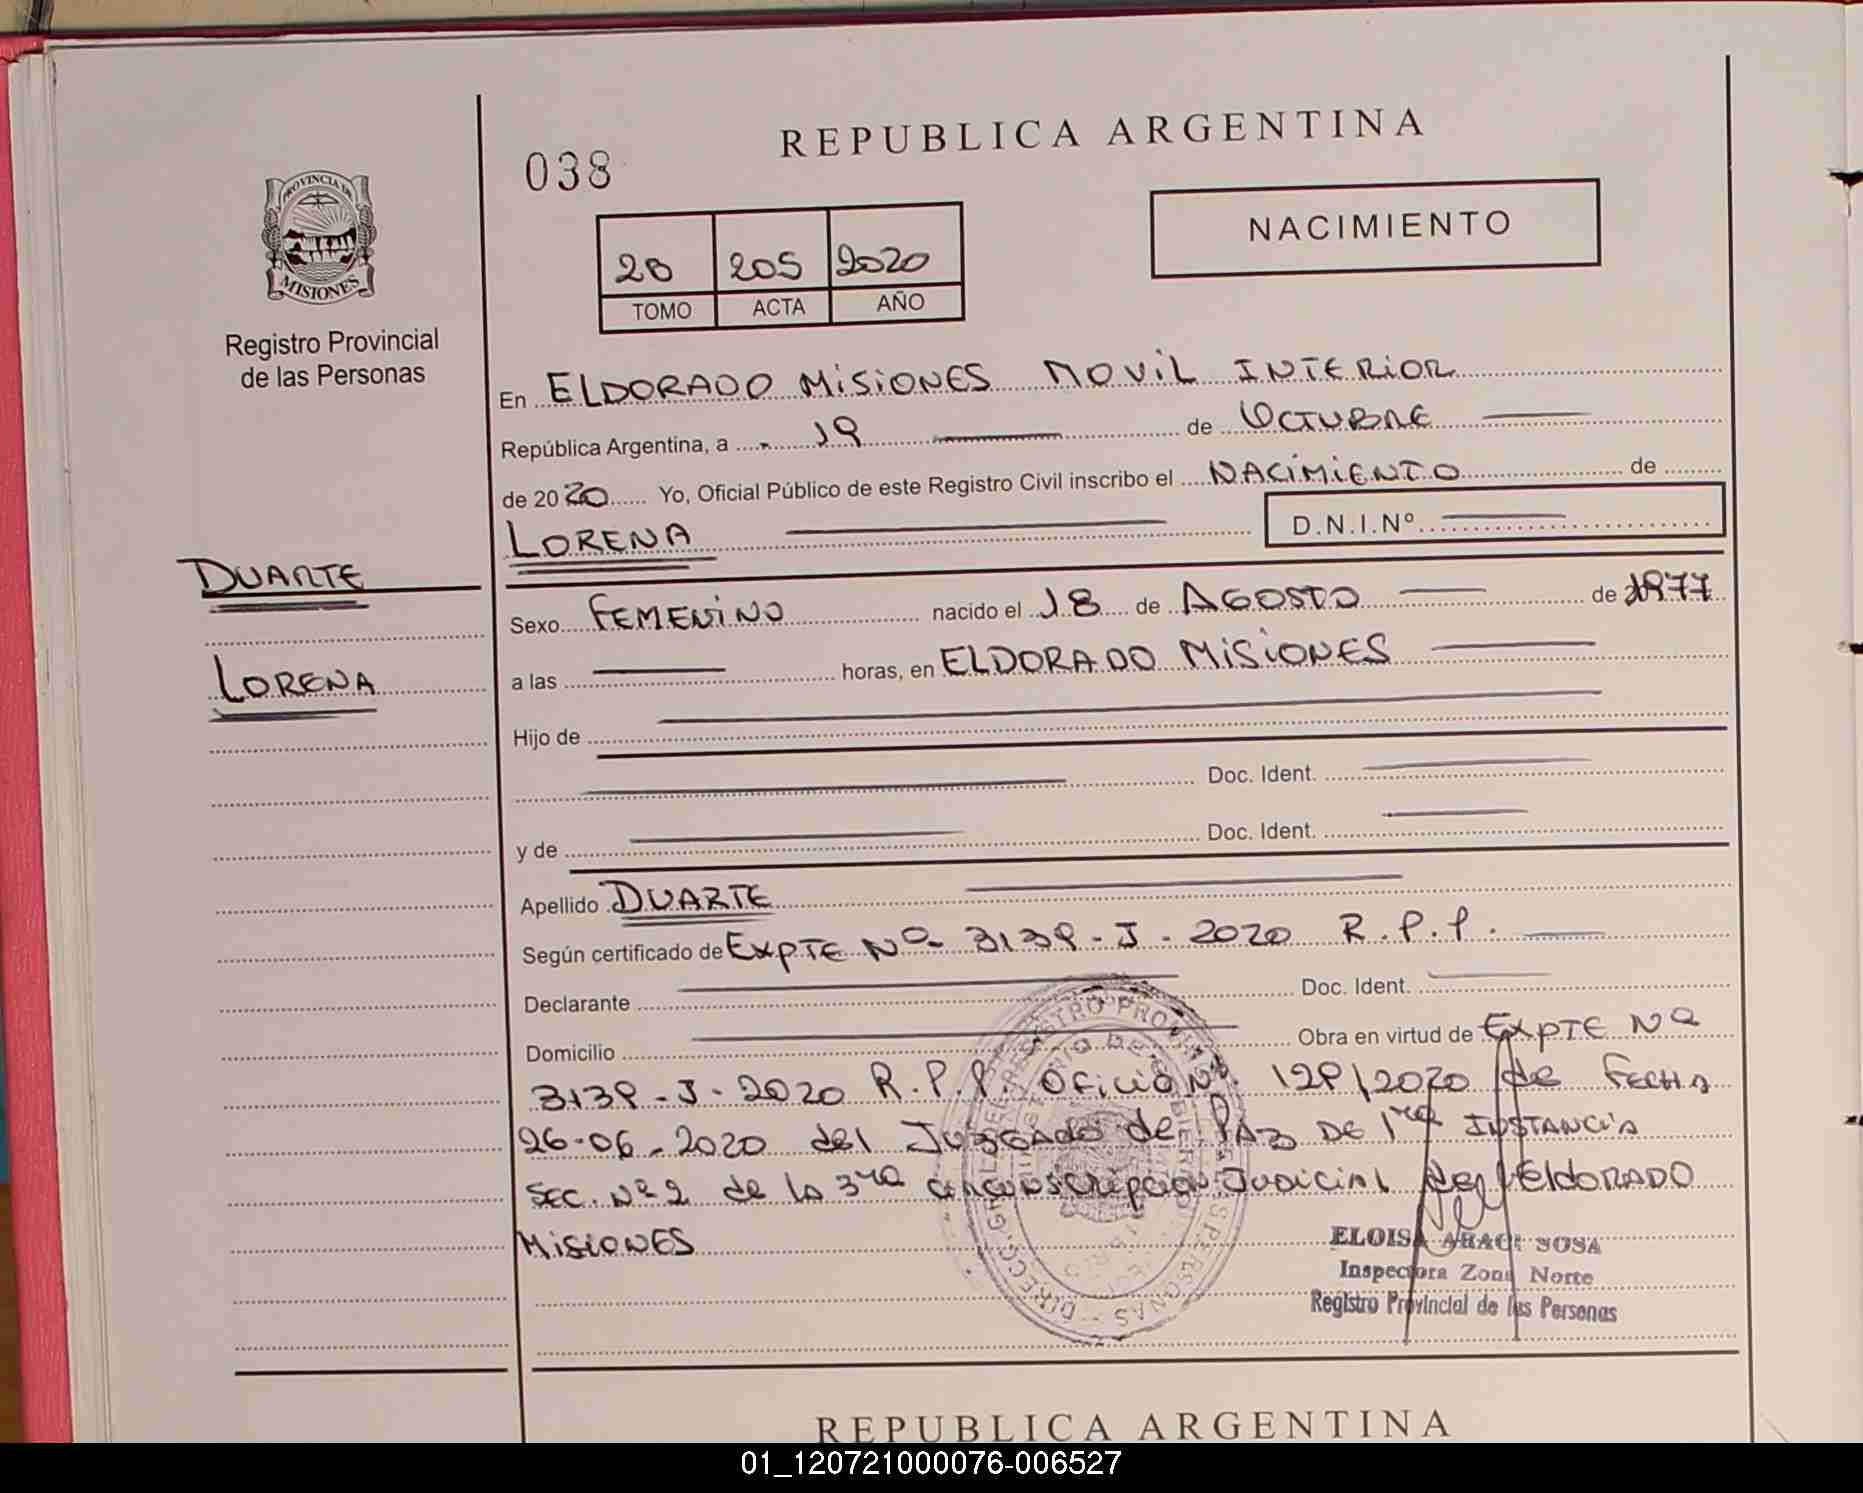 REPUBLICA ARGENTINA
038
PROVINCIA DE
MISIONES
NACIMIENTO
20 205 2020
TOMO ACTA AÑO
Registro Provincial
de las Personas
En ELDORADO MISIONES MOVIL INTERIOR
República Argentina, a 19 de OCTUBRE
de 2020 Yo, Oficial Público de este Registro Civil inscribo el NACIMIENTO de
LORENA D.N.I.Nº
DUARTE
Sexo FEMENINO nacido el 18 de AGOSTO de 1977
LORENA
a las horas, en ELDORADO MISIONES
Hijo de
Doc. Ident.
y de Doc. Ident.
Apellido DUARTE
Según certificado de EXPTE Nº 3139-J-2020 R.P.P.
Declarante Doc. Ident.
Domicilio Obra en virtud de EXPTE Nº
3139-J-2020 R.P.P. OFICIO Nº 129/2020 de FECHA
26-06-2020 del JUZGADO de PAZ DE 1ra INSTANCIA
SEC. Nº 2 de la 3ra circunscripcion Judicial de ELDORADO
MISIONES
ELOISA ARACI SOSA
Inspectora Zona Norte
Registro Provincial de las Personas
REPUBLICA ARGENTINA
01_120721000076-006527